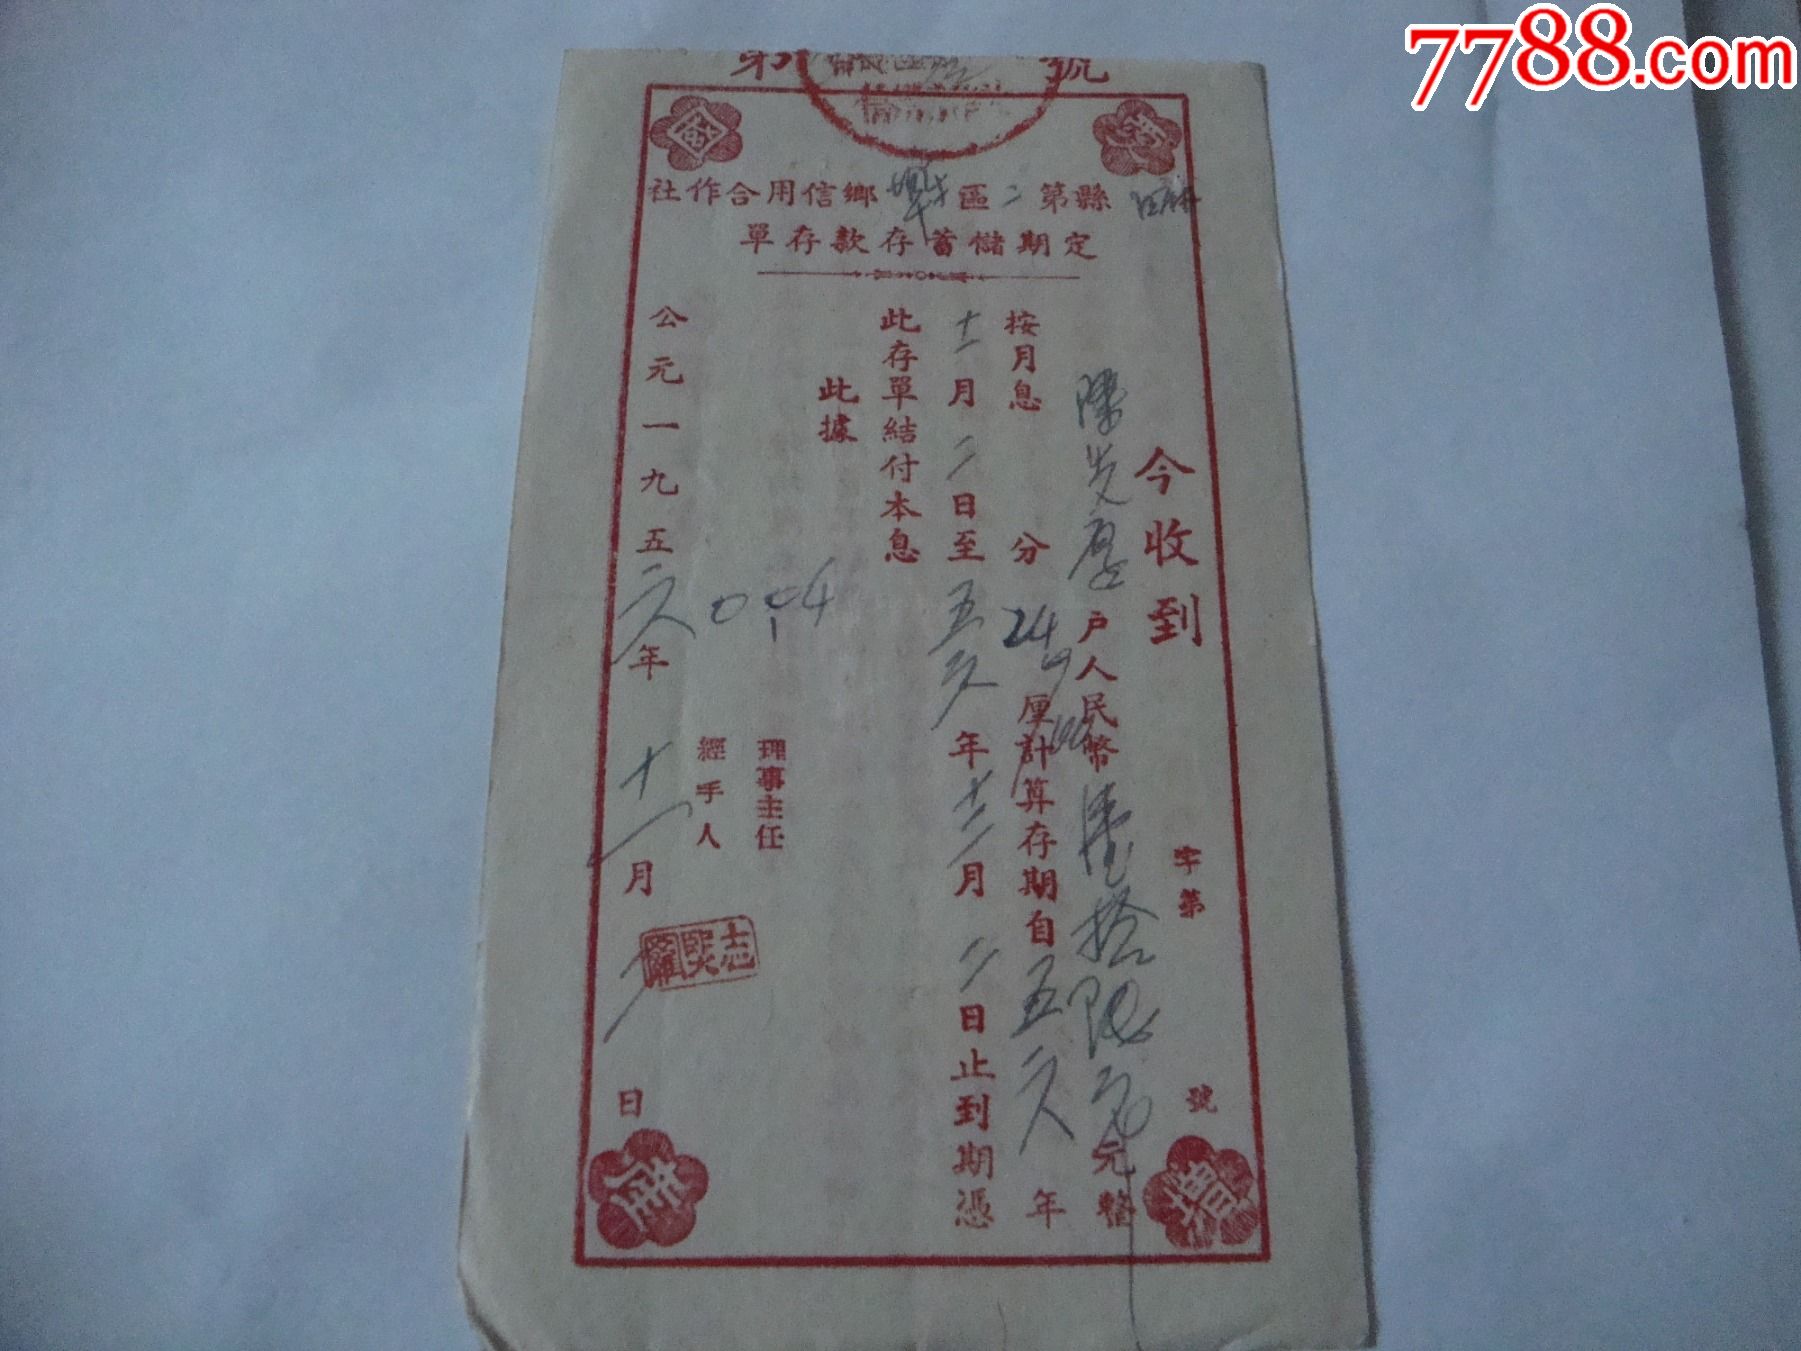 7788.com
第 號
愛 國
縣第二區 鄉信用合作社
定期儲蓄存款存單
今收到 字第 號
陳 戶人民幣 拾 元整
按月息 分 24 厘計算存期自五六年
十一月二日至五六年十二月二日止到期憑
此存單結付本息
此據
0.104
理事主任
經手人
公元一九五六年十一月 日
儲
建